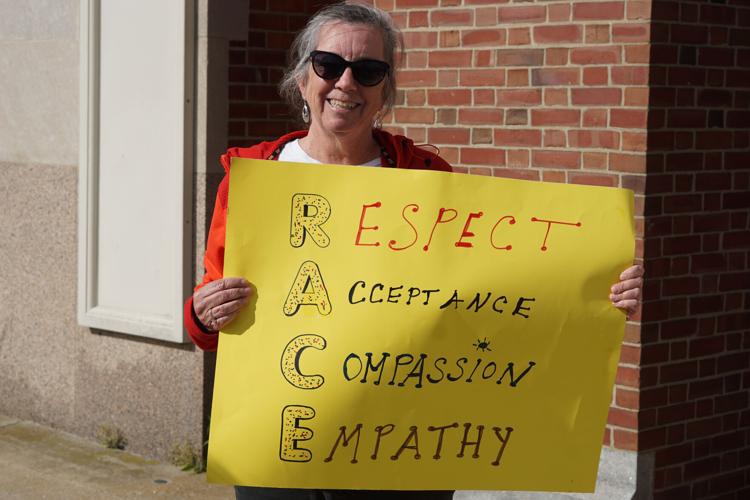 RESPECT
ACCEPTANCE
COMPASSION
EMPATHY